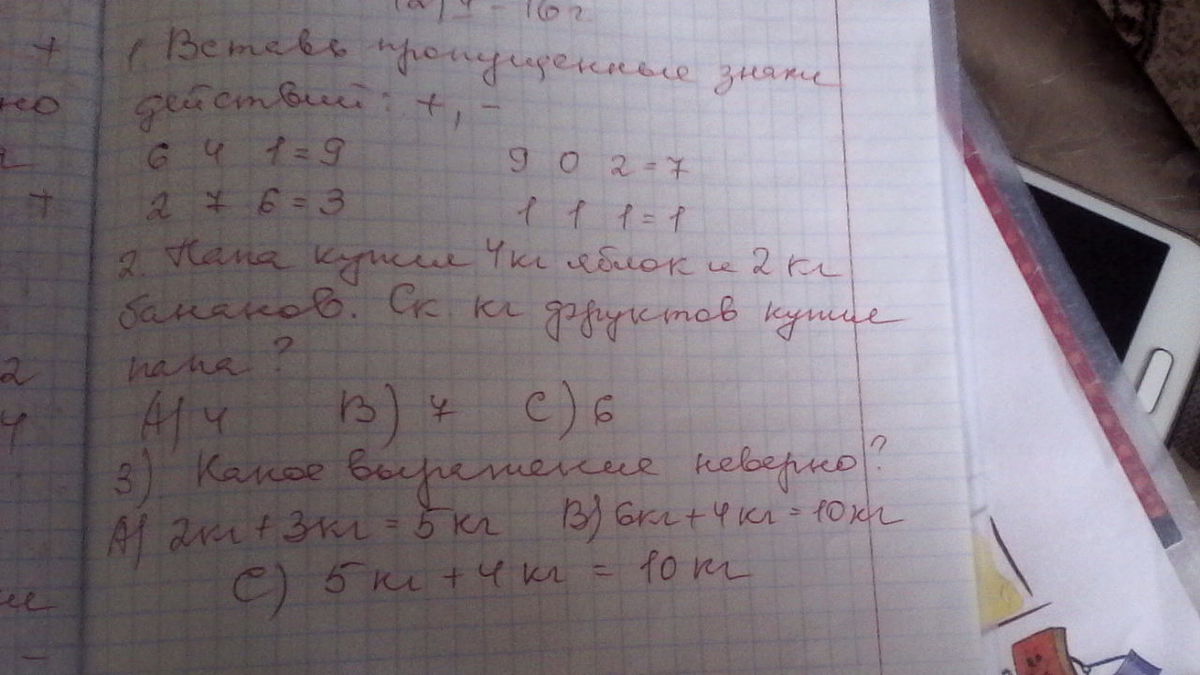 + 1. Вставь пропущенные знаки
но действий: +, -
6 4 1 = 9 9 0 2 = 7
+ 2 7 6 = 3 1 1 1 = 1
2. Папа купил 4 кг яблок и 2 кг
бананов. Ск. кг фруктов купил
2 папа?
4 А) 4 В) 7 С) 6
3) Какое выражение неверно?
А) 2кг + 3кг = 5 кг В) 6кг + 4кг = 10кг
С) 5 кг + 4 кг = 10 кг
-